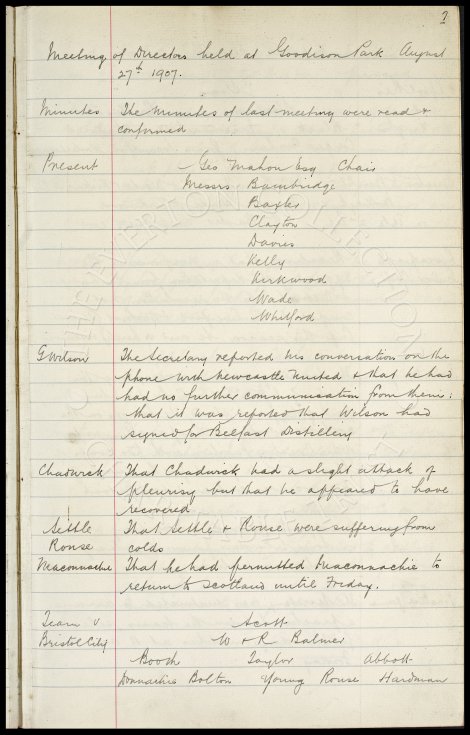 Meeting of Directors held at Goodison Park August
27th 1907.
Minutes The minutes of last meeting were read &
confirmed
Present Geo Mahon Esq Chair
Messrs Bainbridge
Baxter
Clayton
Davies
Kelly
Kirkwood
Wade
Whitford
G Wilson The Secretary reported his conversation on the
phone with Newcastle United & that he had
had no further communication from them;
that it was reported that Wilson had
signed for Belfast Distillery
Chadwick That Chadwick had a slight attack of
pleurisy but that he appeared to have
recovered
Settle That Settle & Rouse were suffering from
Rouse colds
Maconnachie That he had permitted Maconnachie to
return to Scotland until Friday.
Team v Scott
Bristol City W & R Balmer
Booth Taylor Abbott
Donnachie Bolton Young Rouse Hardman
THE EVERTON COLLECTION